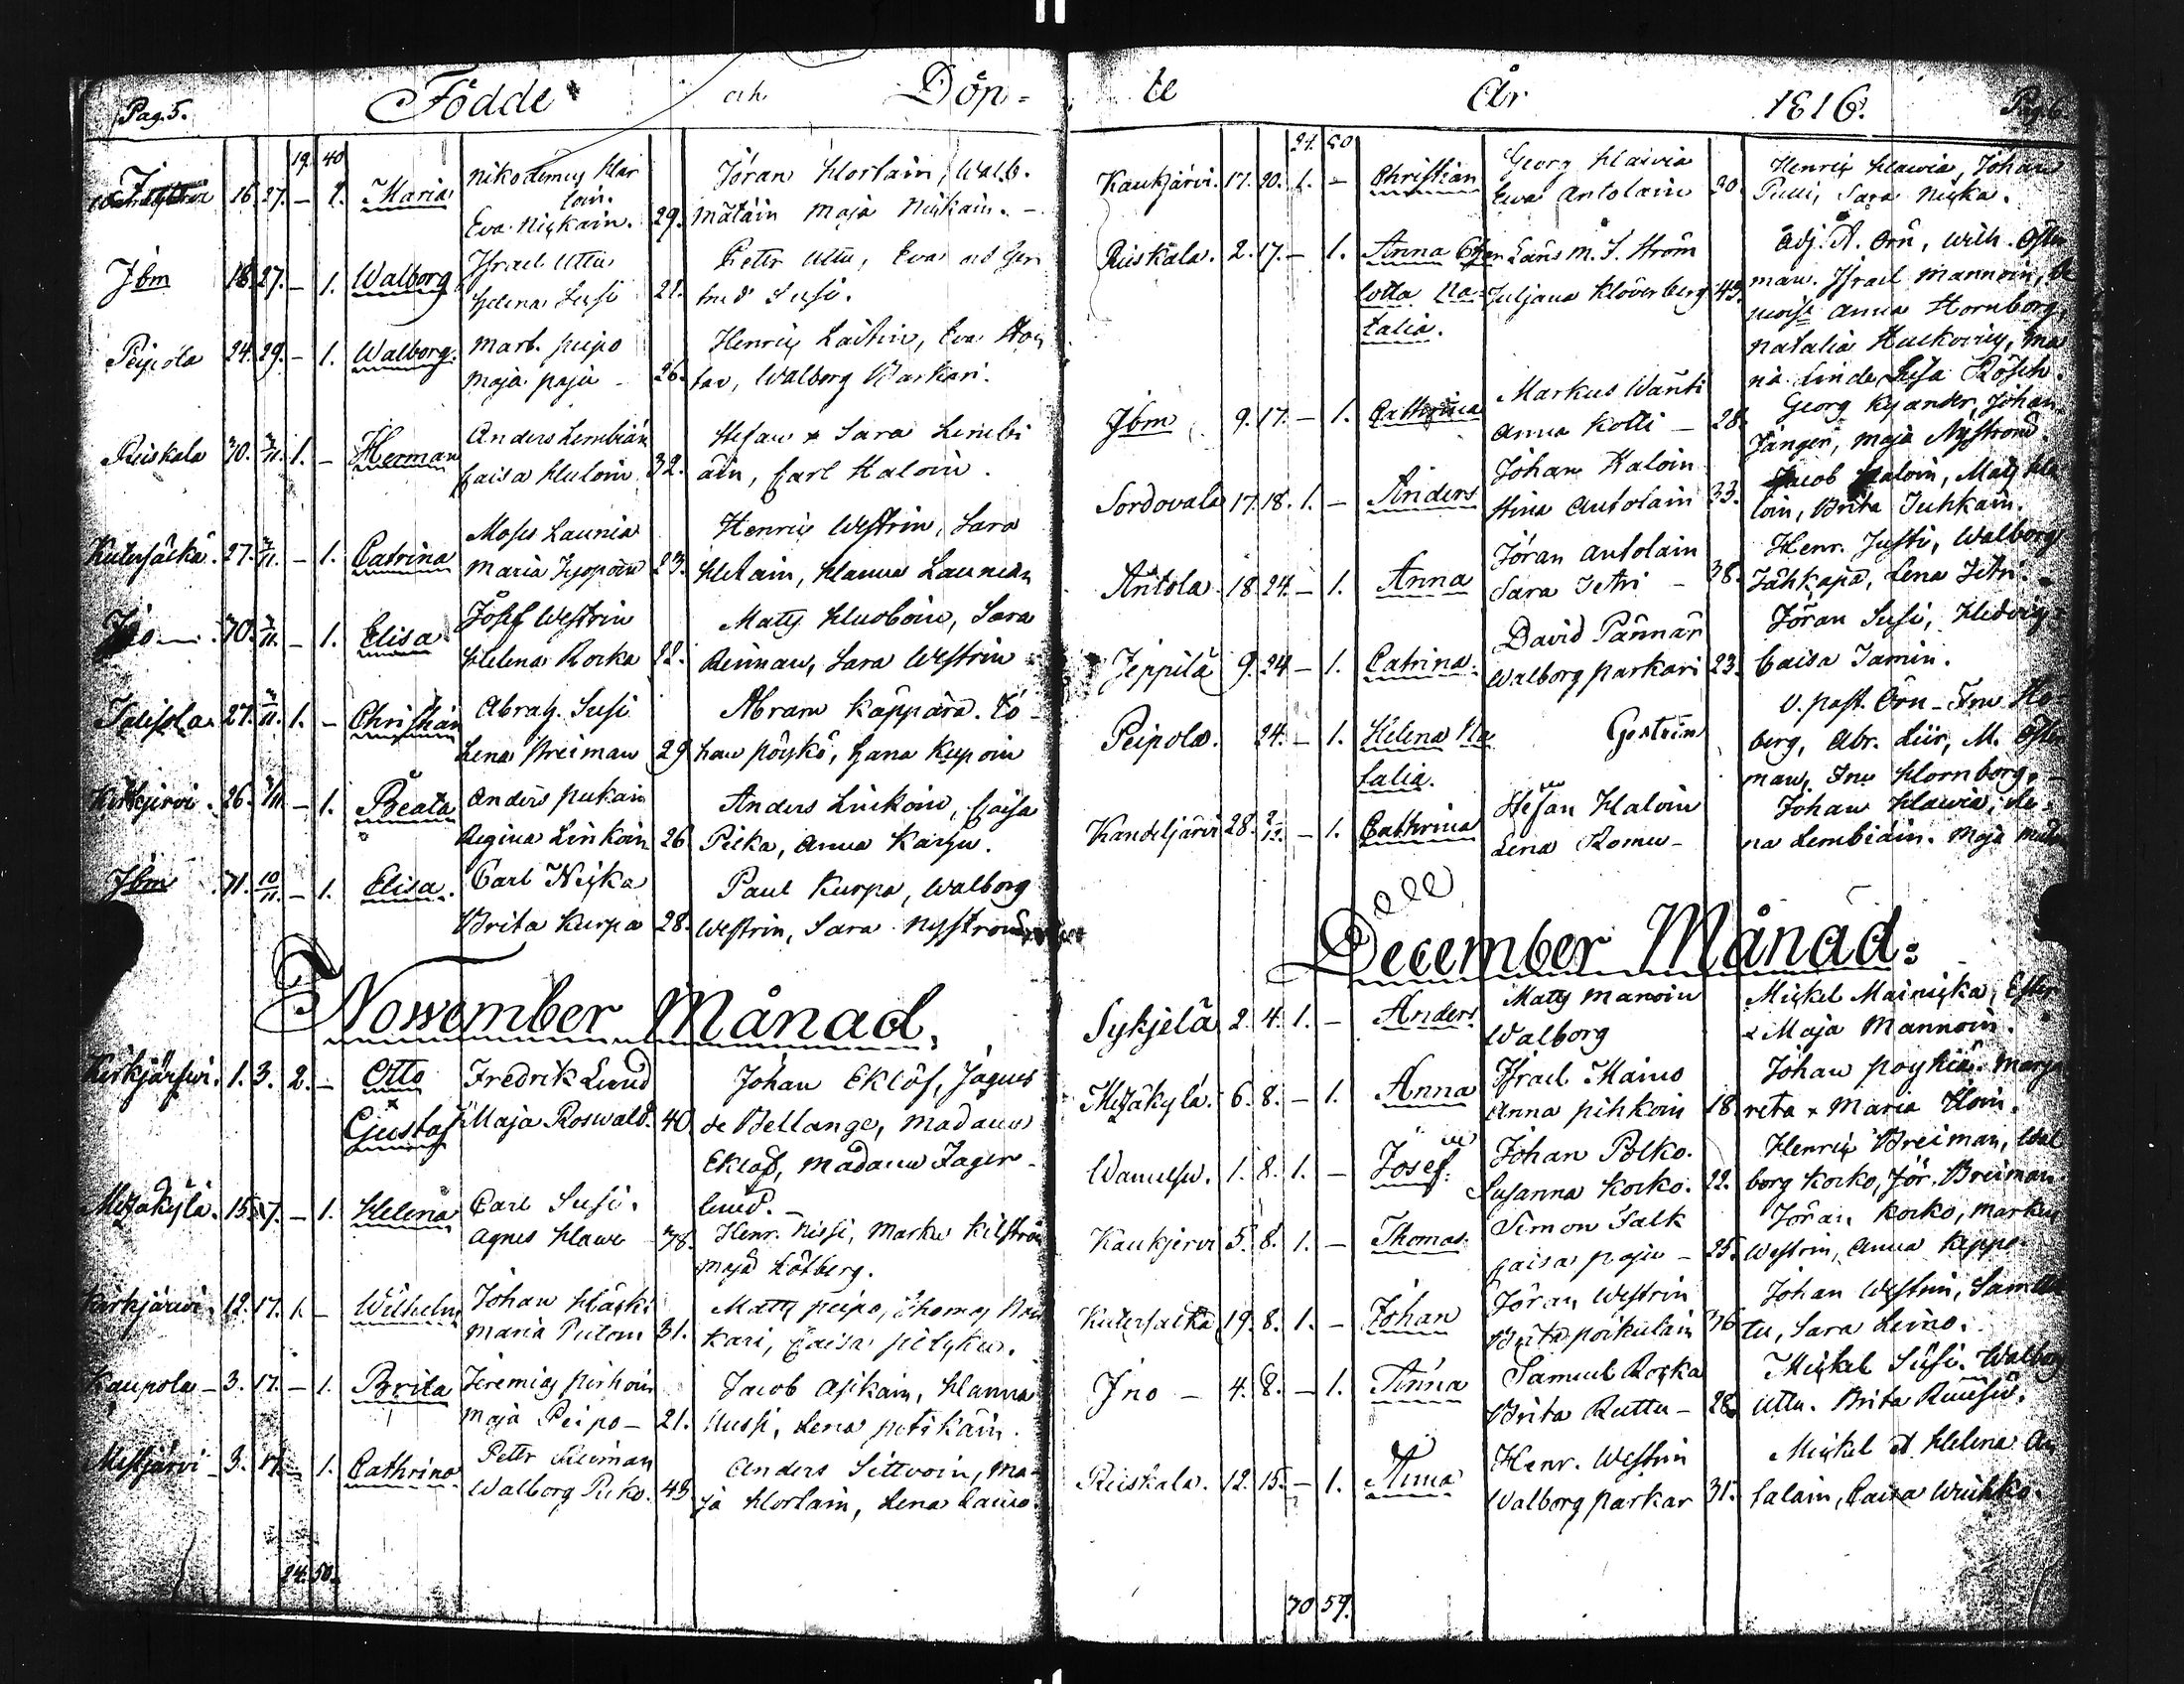 Pag. 5. Födde och Döp=
19. 40
16. 27. – 1. Maria Nikodemus Har
lain.
Eva Nickain. 29.
Jöran Horlain, Walb.
Mätäin Maja Nickain. –
Ibm 18. 27. – 1. Walborg Israel Uttu
Helena Susi 21.
Peter Uttu, Eva och Ger
trud Susi.
Peipola 24. 29. – 1. Walborg. Mart. peipo
Maja paju – 26.
Henric Laitin, Eva
Walborg Parkari.
Riiskala 30. 3/11. 1. – Herman Anders Lembiäin
Caisa Huloin 32.
Stefan & Sara Lembi
äin, Carl Haloin.
Kuterselkä. 27. 3/11. – 1. Catrina Moses Launia
Maria 23.
Henric Westrin, Sara
Hanna Launian
Ino – 30. 3/11. – 1. Elisa Josef Westrin
Helena Rocka 22.
Matts Sara
Reiman, Sara Westrin
27. /11. 1. – Christian Abrah. Susi
Lena Breiman 29
Abram Käppärä. Jo
han pöyskö, Hana Kupoin
Kirkjärvi. 26. /11. – 1. Beata Anders pukain
Regina Linkoin 26
Anders Linkoin, Caisa
Pilka, Anna Karhu.
Ibm 31. 10/11. – 1. Elisa. Carl Nicka
Brita Kurpa 28.
Paul Kurpa, Walborg
Westrin, Sara Nyström
November Månad.
Kirkjärfwi. 1. 3. 2. – Otto
&
Gustaf Fredrik Lund
Maja Roswald. 40
Johan Eklöf, Jaques
de Bellange, Madame
Eklöf, Madame Jager
lund. –
Metzäkylä. 15. 17. – 1. Helena Carl Susi.
Agnes Hawi 38.
Henr. Nissi, Markus Kilström
Maja Löfberg.
Kirkjärwi. 12. 17. 1. – Wilhelm Johan
Maria 31.
Matts peipo, Thomas
kari, Caisa
Kaupola – 3. 17. – 1. Brita Jeremias pirhoin
Maja Peipo – 21.
Jacob Asikain, Hanna
Hussi, Lena
Mestjärvi – 3. 17. – 1. Cathrina Peter Reiman
Walborg 43
Anders Sittvoin, Ma=
ja Horlain, Lena Laino.
24. 50.
te År 1816. Pag. 6.
24. 50
Kaukjärvi. 17. 20. 1. – Christian Georg Hawia
Eva Antolain 20.
Henric Hawia, Johan
Pulli, Sara Nicka.
Riiskala. 2. 17. – 1. Anna Char
lotta Na=
talia. Läns M. S. Ström
Juljana Klöverberg 43.
Adj. A. Örn, Wilh. Öster
man. Israel Mannoin, de
moisse Anna Hornborg,
Natalia
Linde, Lisa Rösch.
Ibm 9. 17. – 1. Cathrina Markus Wänti
Anna Kotti – 28.
Georg Kyander, Johan
Jänger, Maja Nyström.
Sordovala 17. 18. 1. – Anders Johan Haloin
Stina Antolain 33.
Jacob Haloin, Mats Ha
loin, Brita Juhkain.
Antola. 18. 24. – 1. Anna Jöran Antolain
Sara Tetri – 38.
Henr. Justi, Walborg
Jähkäpä, Lena Tetri.
Jeppilä 9. 24 – 1. Catrina. David Pännär
Walborg parkari 23.
Jöran Susi, Hedvig
Caisa Jamin.
Peipola. 24. – 1. Helena Na
talia.
v. past. Örn – Fru Ho
berg, Abr. Liir, M. Öster
man, Fru Hornborg. –
Kandeljärvi 28. 2/12. – 1. Cathrina Stefan Haloin
Lena Romu –
Johan Hawia, He=
na Lembiäin. Maja
December Månad:
Sykjelä 2. 4. 1. – Anders Matts Manoin
Walborg
Mickel Mainicka, Ester
& Maja Mannoin.
Metzäkylä. 6. 8. – 1. Anna Israel Maino
Anna pihkoin 18
Johan poyhiä. Marga
reta & Maria Iloin.
Wamelsu. 1. 8. 1. – Josef. Johan Polko.
Susanna Korko. 22.
Henric Breiman, Wal
borg Korko, Jör. Breiman
Kaukjervi 5. 8. 1. – Thomas. Simon Talk
Caisa paju – 25.
Jöran Korko, Markus
Westrin, Anna Keppo
Kuterselkä 19. 8. 1. – Johan Jöran Westrin
Brita poikulain 36
Johan Westrin,
Sara Leino.
Ino – 4. 8. – 1. Anna Samuel Rocka
Brita Ruttu – 28.
Mickel Susi. Walborg
Uttu. Brita Ruusu.
Riiskala. 12. 15. – 1. Anna Henr. Westrin
Walborg parkar 31.
Mickel & Helena An
talain, Caisa Wuihko.
30 59.